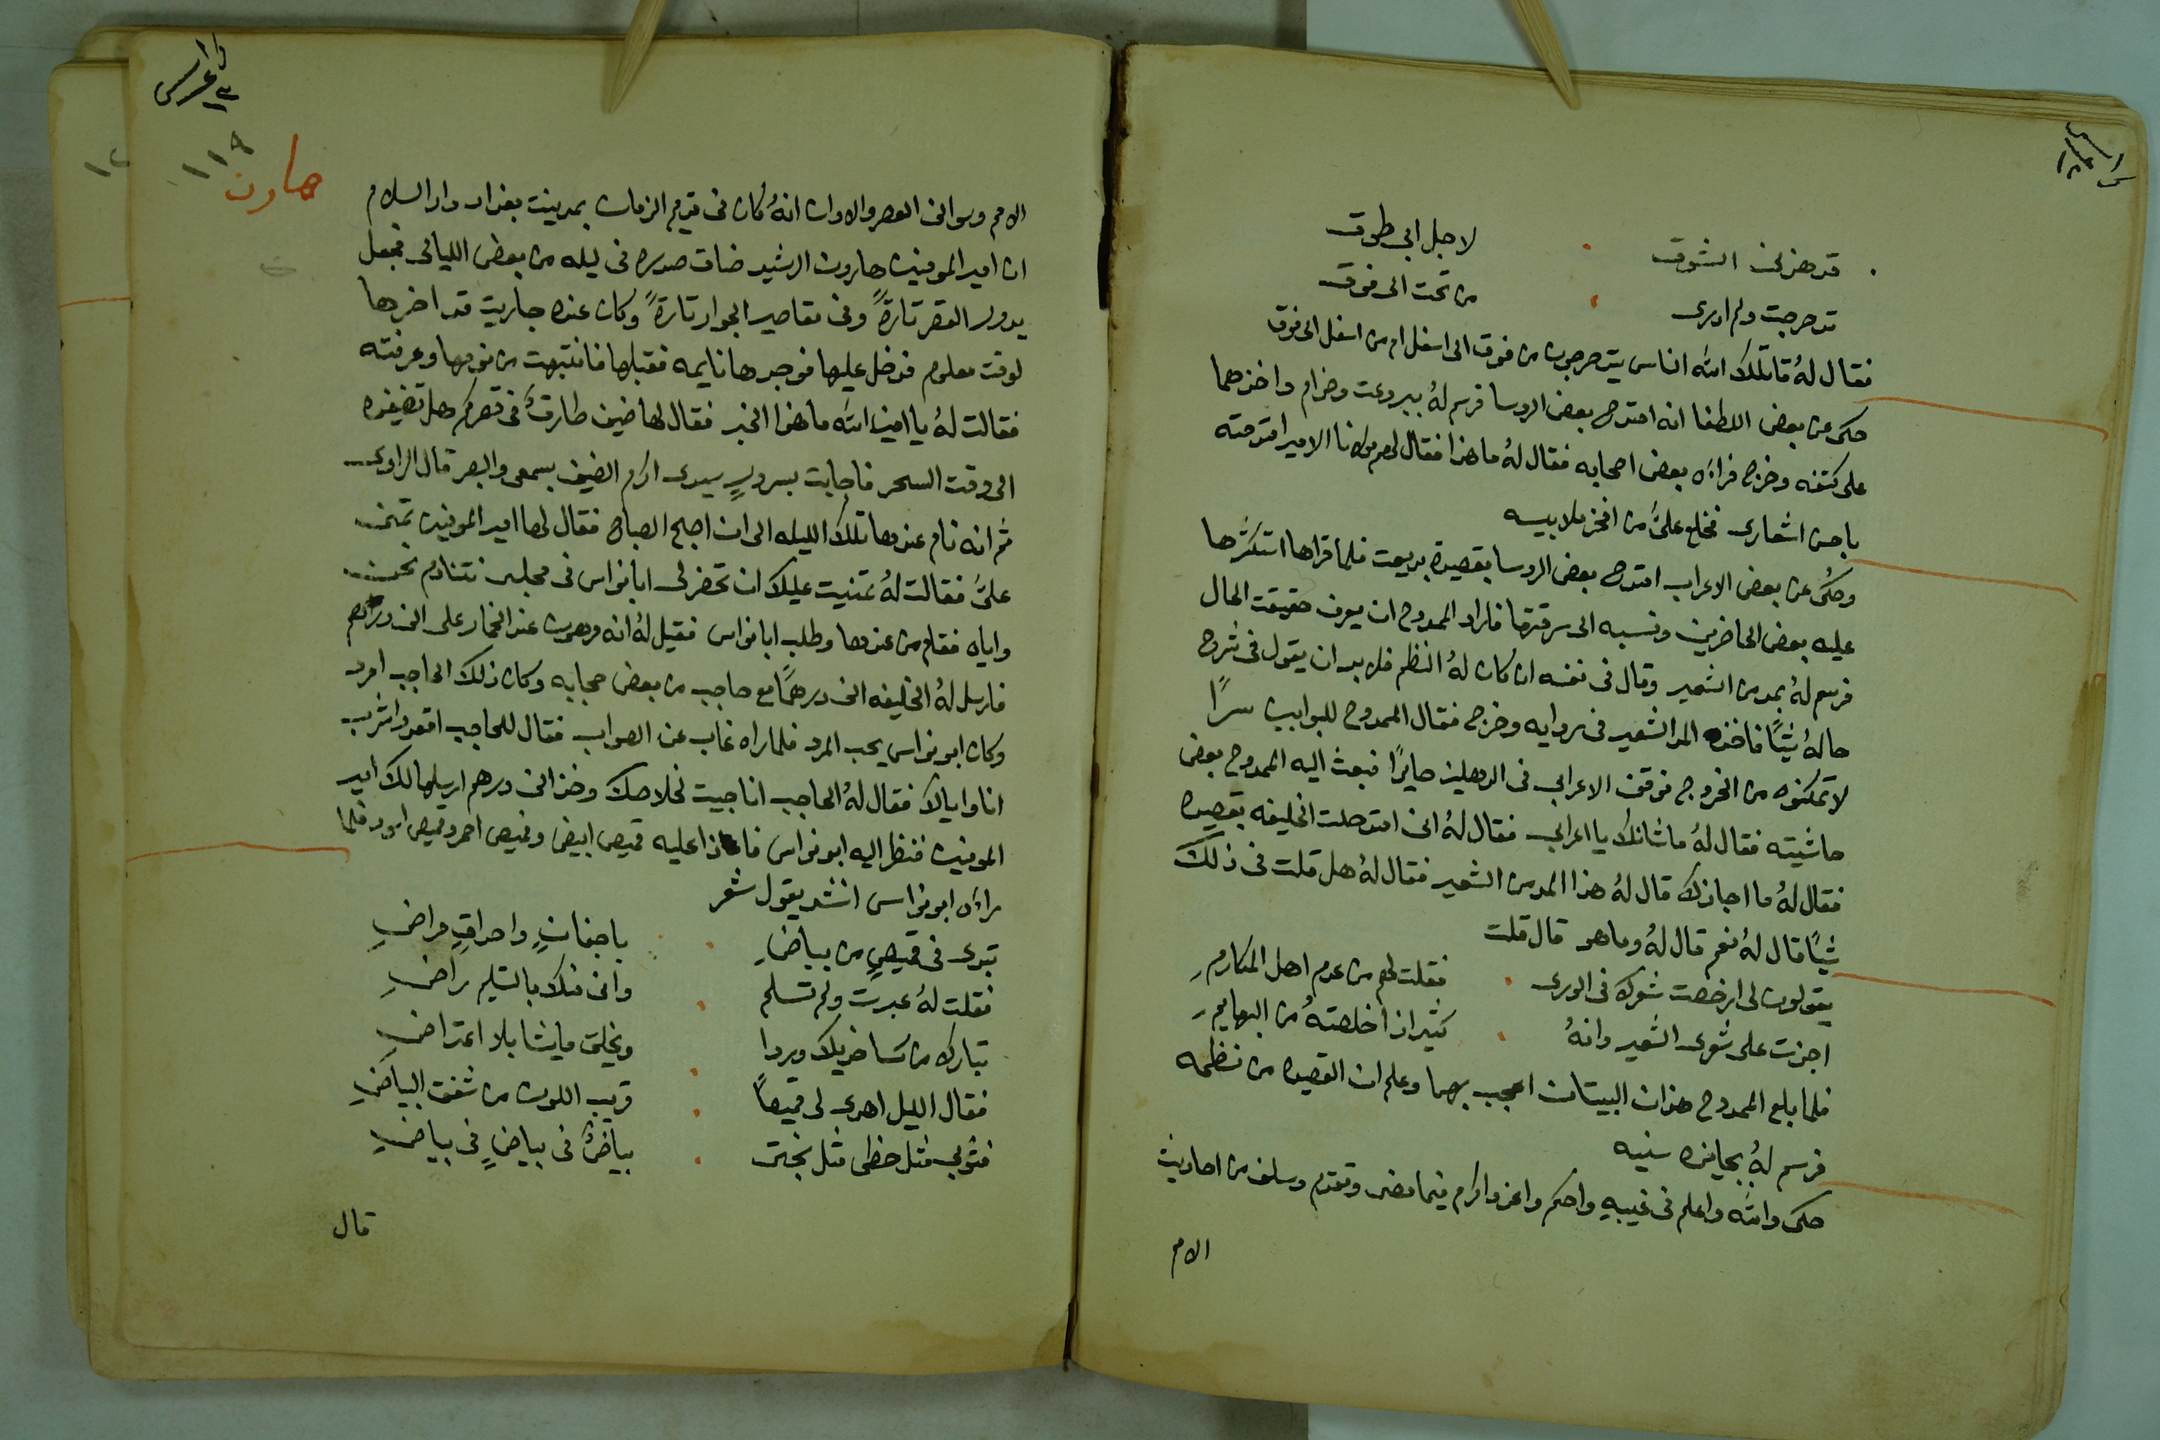 قد هزني الشوق لاجل ابي طوق
تدحرجت ولم ادرى من تحت الى فوق
فقال لهُ قاتلك الله الناس يتدحرجون من فوق الى اسفل ام من اسفل الى فوق
حكى عن بعض اللطفا انه امتدح بعض الروسا فرسم لهُ ببردعت وحزام واخذهما
على كتفه وخرج فراءه بعض اصحابه فقال لهُ ما هذا فقال لهم مولانا الامير امتدحته
باحسن اشعارى فخلع علىَّ من افخر ملابيسه
وحُكى عن بعض الاعراب امتدح بعض الروسا بقصيدة بديعت فلما قراها استكثرها
عليه بعض الحاضرين ونسبه الى سرقتها فاراد الممدوح ان يعرف حقيقت الحال
فرسم لهُ بمد من الشعير وقال فى نفسه ان كان لهُ النظم فلا بد ان يقول فى شرح
حالهُ شيًا فاخذه المد الشعير فى ردايه وخرج فقال الممدوح للبوابين سرًا
لا تمكنوه من الخروج فوقف الاعرابي فى الدهليز حايرًا فبعث اليه الممدوح بعض
حاشيته فقال لهُ ما شانك يا اعرابي فقال لهُ انى امتدحت الخليفه بقصيده
فقال لهُ ما اجازك قال لهُ هذا المد من الشعير فقال لهُ هل قلت فى ذلك
شيًا قال لهُ نعم قال لهُ وما هو قال قلت
يقولون لى ارخصت شعرك فى الورى فقلت لهم من عدم اهل المكارمِ
اجزت على شعرى الشعير وانهُ كثير اذا خلصتهُ من البهايمِ
فلما بلع الممدوح هذان البيتان اعجب بهما وعلم ان القصيده من نظمه
فرسم لهُ بجايزه سنيه
حكى والله واعلم فى غيبهِ واحكم واعز واكرم فيما مضى وتقدم وسلف من احاديث
الامم
هارون
١١٩
الامم وسوالف العصر والاوان انهُ كان فى قديم الزمان بمدينت بغداد دار السلام
ان امير المومنين هارون الرشيد ضاق صدره فى ليله من بعض الليالى فجعل
يدور القصر تارةً وفى مقاصير الجوار تارةً وكان عنده جاريت قد اخرها
لوقت معلوم فدخل عليها فوجدها نايمه فقبلها فانتبهت من نومها وعرفته
فقالت لهُ يا امين الله ما هذا الخبر فقال لها ضيف طارقٌ فى قصركم هل تضيفوه
الى وقت السحر فاجابت بسرورٍ سيدى اكرم الضيف بسمعى والبصر قال الراوى
ثم انه نام عندها تلك الليله الى ان اصبح الصباح فقال لها امير المومنين تمنى
علىَّ فقالت لهُ تمنيت عليك ان تحضر لى ابا نواس فى مجلس نتنادم نحن
واياه فقام من عندها وطلب ابا نواس فقيل لهُ انه مرهون عند الخمار على الف درهم
فارسل لهُ الخليفه الف درهمًا مع حاجب من بعض حجابه وكان ذلك الحاجب امرد
وكان ابو نواس يحب المرد فلما راه غاب عن الصواب فقال للحاجب اقعد اشرب
انا واياك فقال لهُ الحاجب انا جيت لخلاصك وخذ الف درهم ارسلها لك امير
المومنين فنظر اليه ابو نواس فاذا عليه قميص ابيض وقميص احمر وقميص اسود فلما
راءه ابو نواس انشد يقول شعر
تبدى فى قميصٍ من بياضِ باجفانٍ واحداقٍ مراضِ
فقلت لهُ عبرت ولم تسلم وانى منك بالتسليم راضِ
تبارك من كسا خديك وردا ويخلق ما يشا بلا اعتراضِ
فقال الليل اهدى لى قميصاً قريب اللون من شفق البياضِ
فثوبي مثل حظى مثل بختى بياضٌ فى بياضٍ فى بياضِ
قال